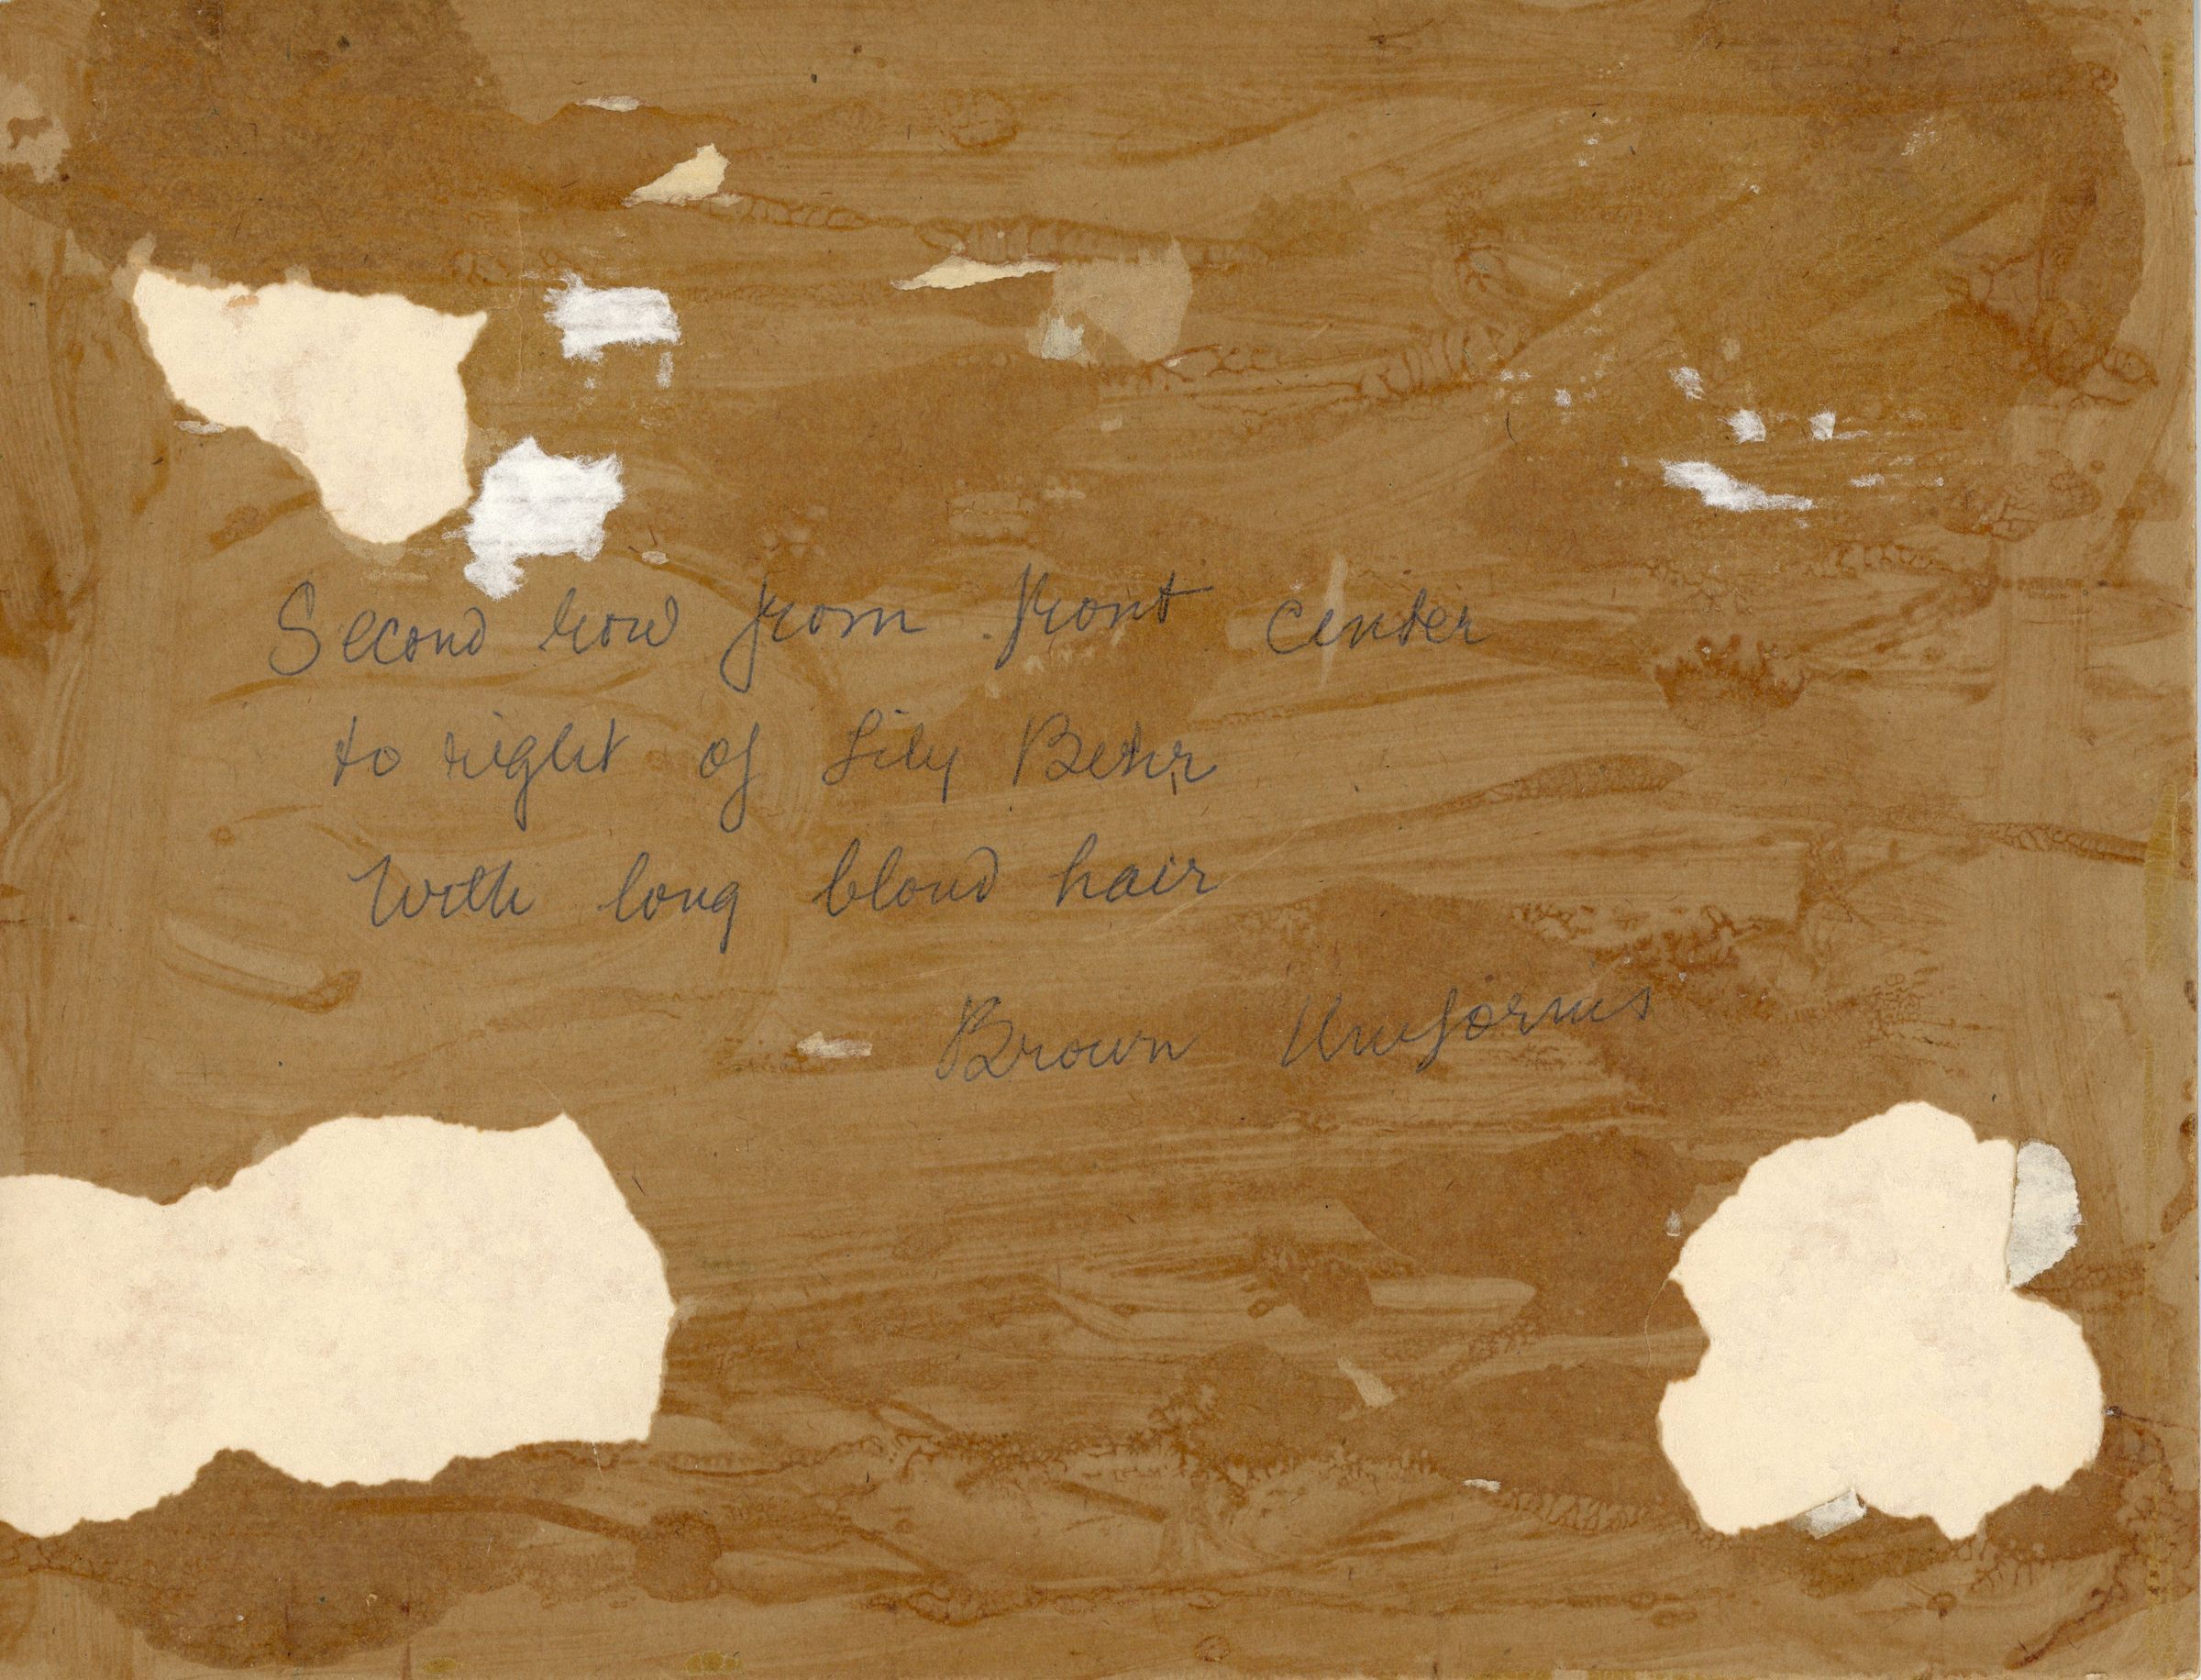 Second row from front center
to right of Lily Behr
with long blond hair
Brown Uniforms